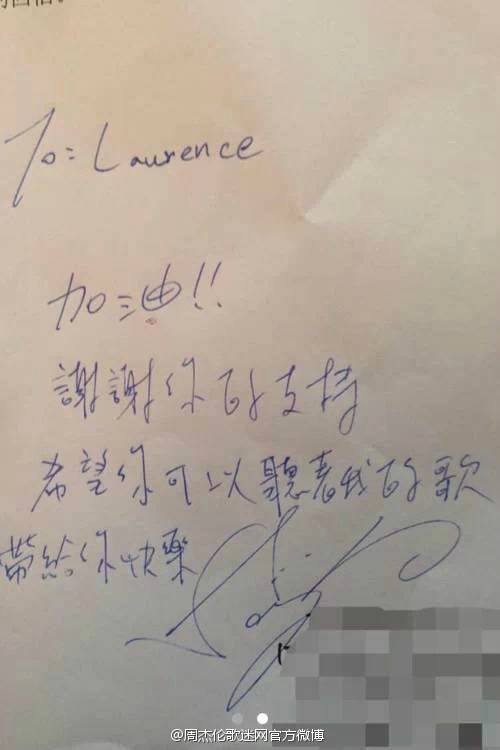 To: Lawrence
加油!!
謝謝你的支持
希望你可以聽著我的歌
帶給你快樂
@周杰伦歌迷网官方微博